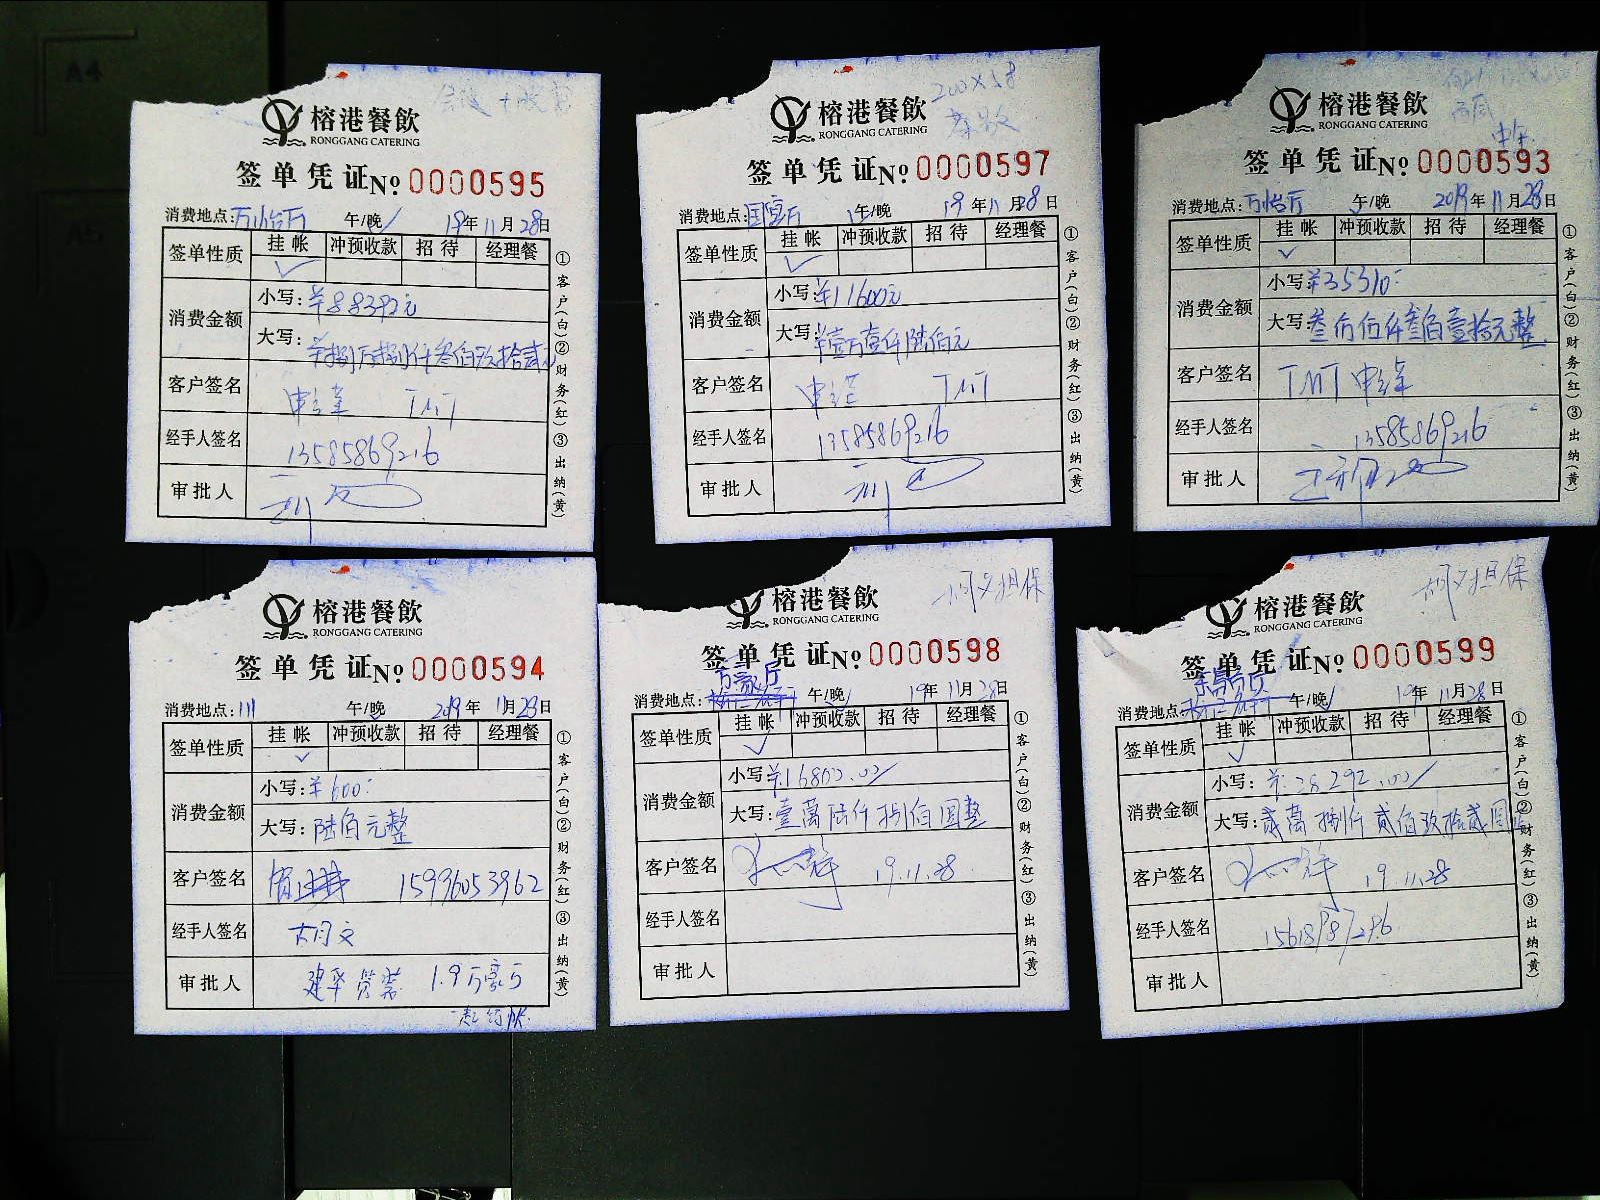 榕港餐飲
RONGGANG CATERING
签单凭证 No 0000595
消费地点:万怡厅 午/晚 19年11月28日
签单性质 挂帐 冲预收款 招待 经理餐
消费金额
小写:¥88392元
大写:¥捌万捌仟叁佰玖拾贰元
客户签名 TMT
经手人签名 13585869216
审批人
①客户(白)②财务(红)③出纳(黄)
200×58
榕港餐飲
RONGGANG CATERING
签单凭证 No 0000597
消费地点:国宴厅 午/晚 19年11月28日
签单性质 挂帐 冲预收款 招待 经理餐
消费金额
小写:¥11600元
大写:¥壹万壹仟陆佰元
客户签名 TMT
经手人签名 13585869216
审批人
①客户(白)②财务(红)③出纳(黄)
中午
榕港餐飲
RONGGANG CATERING
签单凭证 No 0000593
消费地点:万怡厅 午/晚 2019年11月28日
签单性质 挂帐 冲预收款 招待 经理餐
消费金额
小写:¥35310-
大写:叁万伍仟叁佰壹拾元整
客户签名 TMT
经手人签名 13585869216
审批人
①客户(白)②财务(红)③出纳(黄)
榕港餐飲
RONGGANG CATERING
签单凭证 No 0000594
消费地点:111 午/晚 2019年11月28日
签单性质 挂帐 冲预收款 招待 经理餐
消费金额
小写:¥600-
大写:陆佰元整
客户签名 15996053962
经手人签名
审批人 1.9万
①客户(白)②财务(红)③出纳(黄)
担保
榕港餐飲
RONGGANG CATERING
签单凭证 No 0000598
万豪厅
消费地点: 午/晚 19年11月28日
签单性质 挂帐 冲预收款 招待 经理餐
消费金额
小写:¥16800.00/
大写:壹萬陆仟捌佰圆整
客户签名 19.11.28
经手人签名
审批人
①客户(白)②财务(红)③出纳(黄)
担保
榕港餐飲
RONGGANG CATERING
签单凭证 No 0000599
消费地点: 午/晚 19年11月28日
签单性质 挂帐 冲预收款 招待 经理餐
消费金额
小写:¥28292.00/
大写:贰萬捌仟贰佰玖拾贰圆
客户签名 19.11.28
经手人签名
审批人
①客户(白)②财务(红)③出纳(黄)